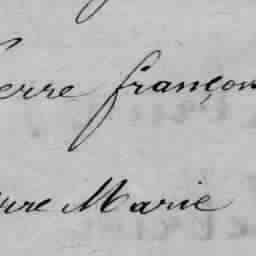 erre françoi
rre Marie